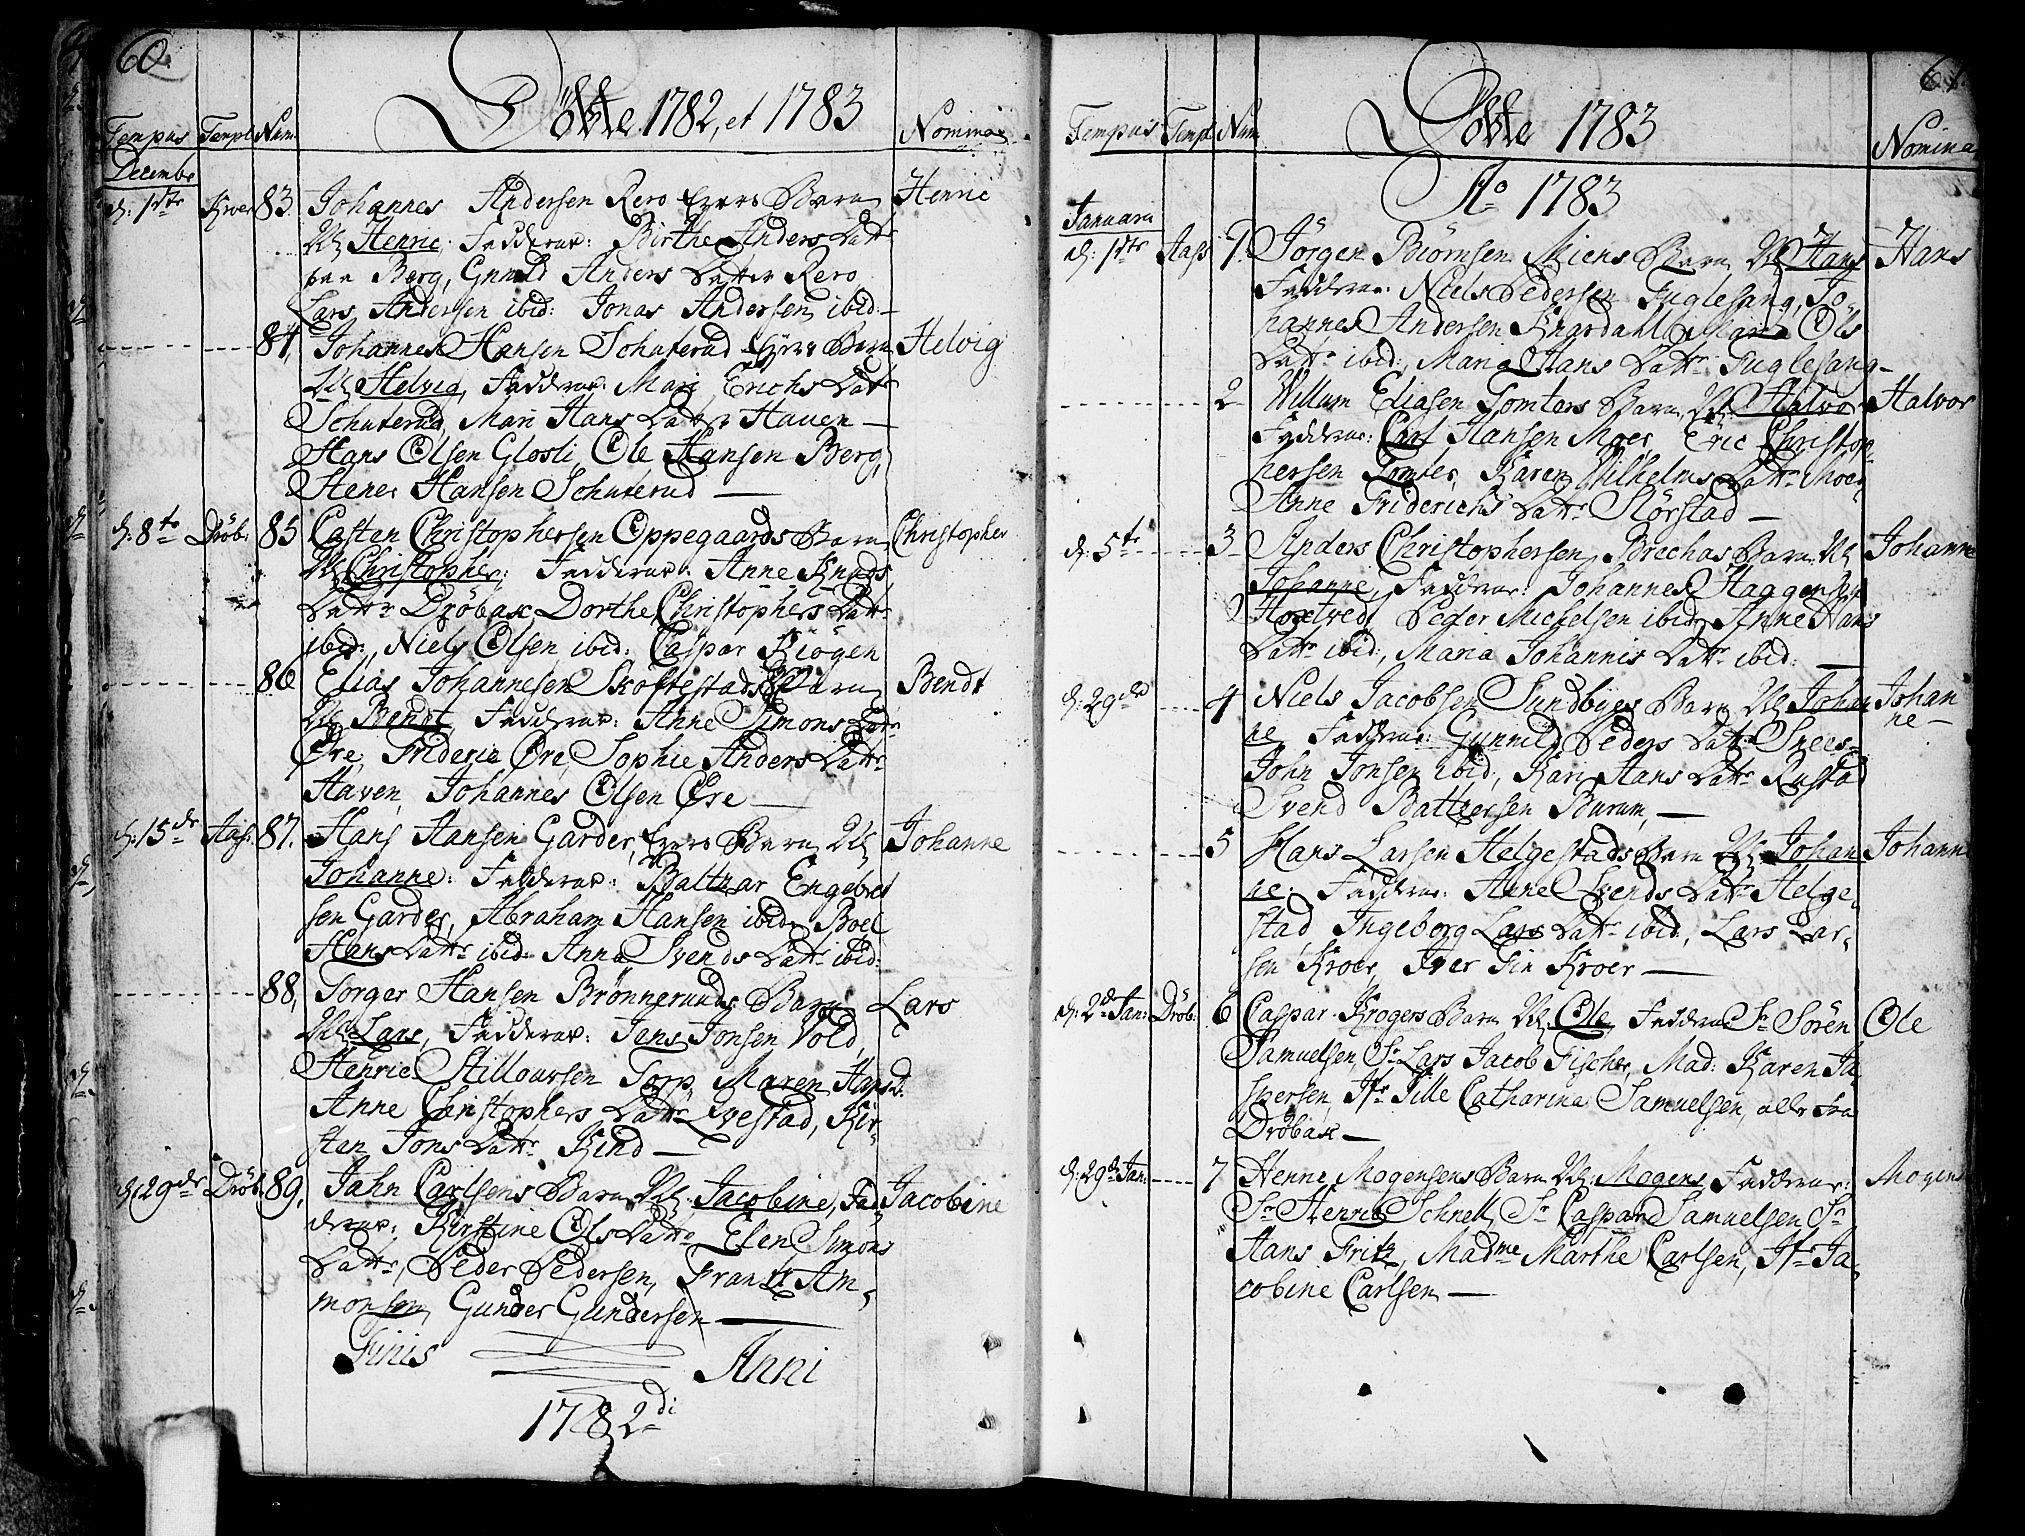 60.
Döbte 1782, et 1783
Tempus Templ Num. Nomina
Decembr
d: 1ste Kroer 83. Johannes Andersen Rero Barn Henric
Nl. Henric: Fadderne: Birthe Anders Datter
paa Berg, Gunild Anders Datter Rero
Lars Andersen ibid: Jonas Andersen ibid:
84, Johannes Hansen Schuterud Barn Helvig
Nl Helvig, Fadderne: Mari Erichs Datter
Schuterud, Mari Hans Datter Hauen
Hans Olsen Glosli, Ole Hansen Berg,
Hansen Schuterud
d: 8te Dröb: 85 Casten Christophersen Oppegaards Barn Christopher
Nl Christopher: Fadderne: Anne Knuds
Datter Dröbac Dorthe Christophers Datter
ibid:, Niels Olsen ibid: Caspar Kiögen
86 Elias Johannesen Skoftestads Barn Bendt
Nl Bendt, Fadderne: Anne Simons Datter
Øre, Frideric Øre, Sophie Anders Datter
Haven, Johannes Olsen Øre
d: 15de Aass: 87. Hans Hansen Garder, Barn Nl Johanne
Johanne: Fadderne: Baltzar Engebret
sen Garder, Abraham Hansen ibid: Boel
Hans Datter ibid: Anna Svends Datter ibid:
88, Torger Hansen Brönneruds Barn Lars
Nl Lars, Fadderne: Jens Jonsen Vold,
Henric Stillaursen Torp, Maren Hans D.
Anne Christophers Datter Qvestad, Kir-
sten Jons Datter Kind
d: 29de Dröb. 89, Jahn Carlsens Barn Nl. Jacobine, Fad Jacobine
derne: Kirstine Ols Datter Elen Simons
Datter, Peder Pedersen, Frantz Am-
monsen, Gunder Gundersen
Finis Anni
1782di
61.
Döbte 1783
Tempus Templ Num Nomina
Ao 1783
Januarii
d: 1ste Aass 1. Jörgen Biörnsen Miens Barn Nl Hans Hans
Fadderne: Niels Pedersen Fuglesang, Jo-
hannes Andersen Maria Ols
Datter ibid:, Maria Hans Datter Fuglesang
2 Willum Eliasen Tomters Barn, Nl. Halvor Halvor
Fadderne: Carl Hansen Moer, Eric Christop-
hersen Tomter, Karen Vilhelms Datter Moer
Anne Friderichs Datter Störstad
d: 5te 3 Anders Christophersen Brechas Barn Nl Johanne
Johanne, Fadderne: Johannes Haagensen
Hoxtvedt Peder Michelsen ibid: Anne Hans
Datter ibid:, Maria Johannis Datter ibid:
d: 29de 4 Niels Jacobsen Sundbyes Barn Nl Johan Johan
ne Fadderne: Gunnild Peders Datter Snees- ne
John Jonsen ibid:, Kari Hans Datter Rustad
Svend Baltzersen Burum,
5 Hans Larsen Helgestads Barn Nl Johan Johanne
ne: Fadderne: Anne Svends Datter Helge-
stad Ingeborg Lars Datter ibid:, Lars Lar-
sen Kroer, Iver Fin Kroer
d: 2d Jan: Dröb: 6 Caspar Krogers Barn Nl. Ole, Fadderne Sr Sören Ole
Samuelsen, Sr Lars Jacob Fischer, Mad: Karen Ja-
spersen, Jfr Sille Catharina Samuelsen, alle fra
Dröbac
d: 29d Jan: 7 Henne Mogensens Barn Nl: Mogens Fadderne: Mogens
Sr Henric Schnell, Sr Caspar Samuelsen, Sr
Hans Fritz, Madme Marthe Carlsen, Jfr Ja-
cobine Carlsen